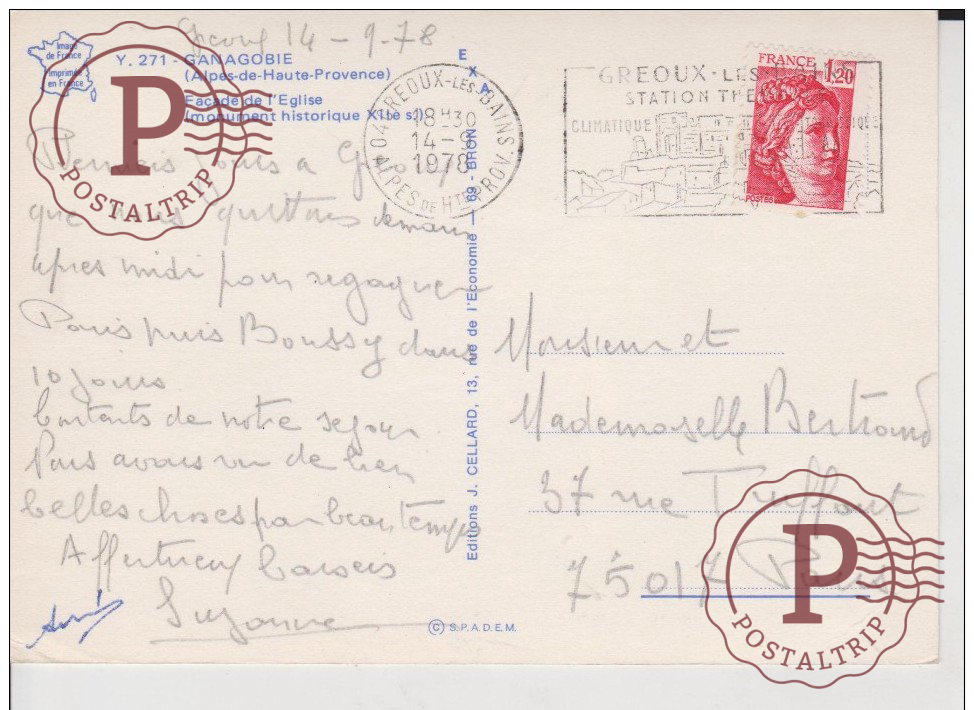 Greoux 14-9-78
Image
de France
Imprimée
en France
Y. 271 - GANAGOBIE
(Alpes-de-Haute-Provence)
Façade de l'Eglise
(monument historique XIIe s.)
EXA
04 GREOUX-LES-BAINS
18H30
14-9
1978
ALPES DE HTE PROV.
GREOUX-LES-BAINS
STATION THE
CLIMATIQUE
FRANCE
1,20
POSTES
a Greoux
que nous quittons demain
après midi pour regagner
Paris puis Boussy dans
10 jours
Contents de notre sejour
Nous avons vu de bien
belles choses par beau temps
Affectueux baisers
Suzanne
Editions J. CELLARD, 13, rue de l'Economie — 69 - BRON
© S.P.A.D.E.M.
Monsieur et
Mademoiselle Bertrand
37 rue Truffaut
75017 Paris
P
POSTALTRIP
P
POSTALTRIP